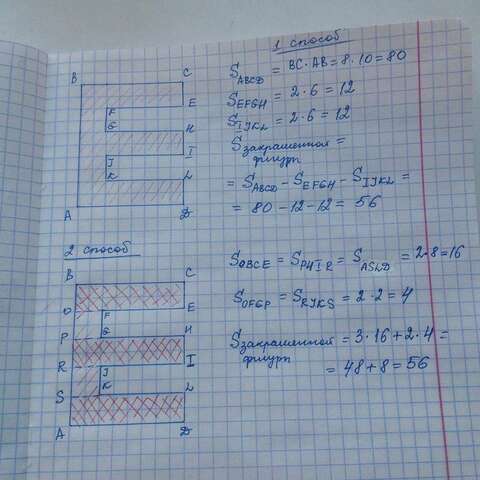 1 способ
B C
F E
G H
J I
K L
A D
S_ABCD = BC·AB = 8·10 = 80
S_EFGH = 2·6 = 12
S_IJKL = 2·6 = 12
S закрашенной =
фигуры
= S_ABCD - S_EFGH - S_IJKL =
= 80 - 12 - 12 = 56
2 способ
B C
O F E
P G H
R J I
S K L
A D
S_OBCE = S_PHIR = S_ASLD = 2·8 = 16
S_OFGP = S_RJKS = 2·2 = 4
S закрашенной = 3·16 + 2·4 =
фигуры
= 48 + 8 = 56